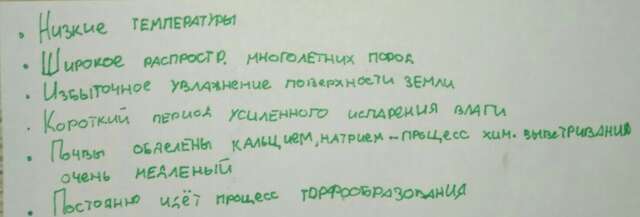 • Низкие температуры
• Широкое распростр. многолетних пород
• Избыточное увлажнение поверхности земли
• Короткий период усиленного испарения влаги
• Почвы обделены кальцием, натрием – процесс хим. выветривания
очень медленый
• Постоянно идёт процесс торфообразования